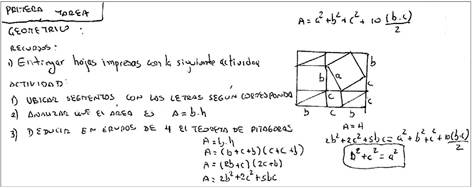 PRIMERA TAREA
GEOMETRIC:
RECURSOS:
1) Entregar hojas impresas con la siguiente actividad
ACTIVIDAD:
1) UBICAR SEGMENTOS CON LAS LETRAS SEGÚN CORRESPONDA
2) ANALIZAR QUE EL ÁREA ES A = b.h
3) DEDUCIR EN GRUPOS DE 4 EL TEOREMA DE PITÁGORAS
A = b.h
A = (b+c+b)(c+c+b)
A = (2b+c)(2c+b)
A = 2b²+2c²+5bc
A = a²+b²+c²+10 (b.c)/2
b
a
b
c
b
c
c
b
c
b
A = A
2b²+2c²+5bc = a²+b²+c²+10(b.c)/2
b²+c² = a²